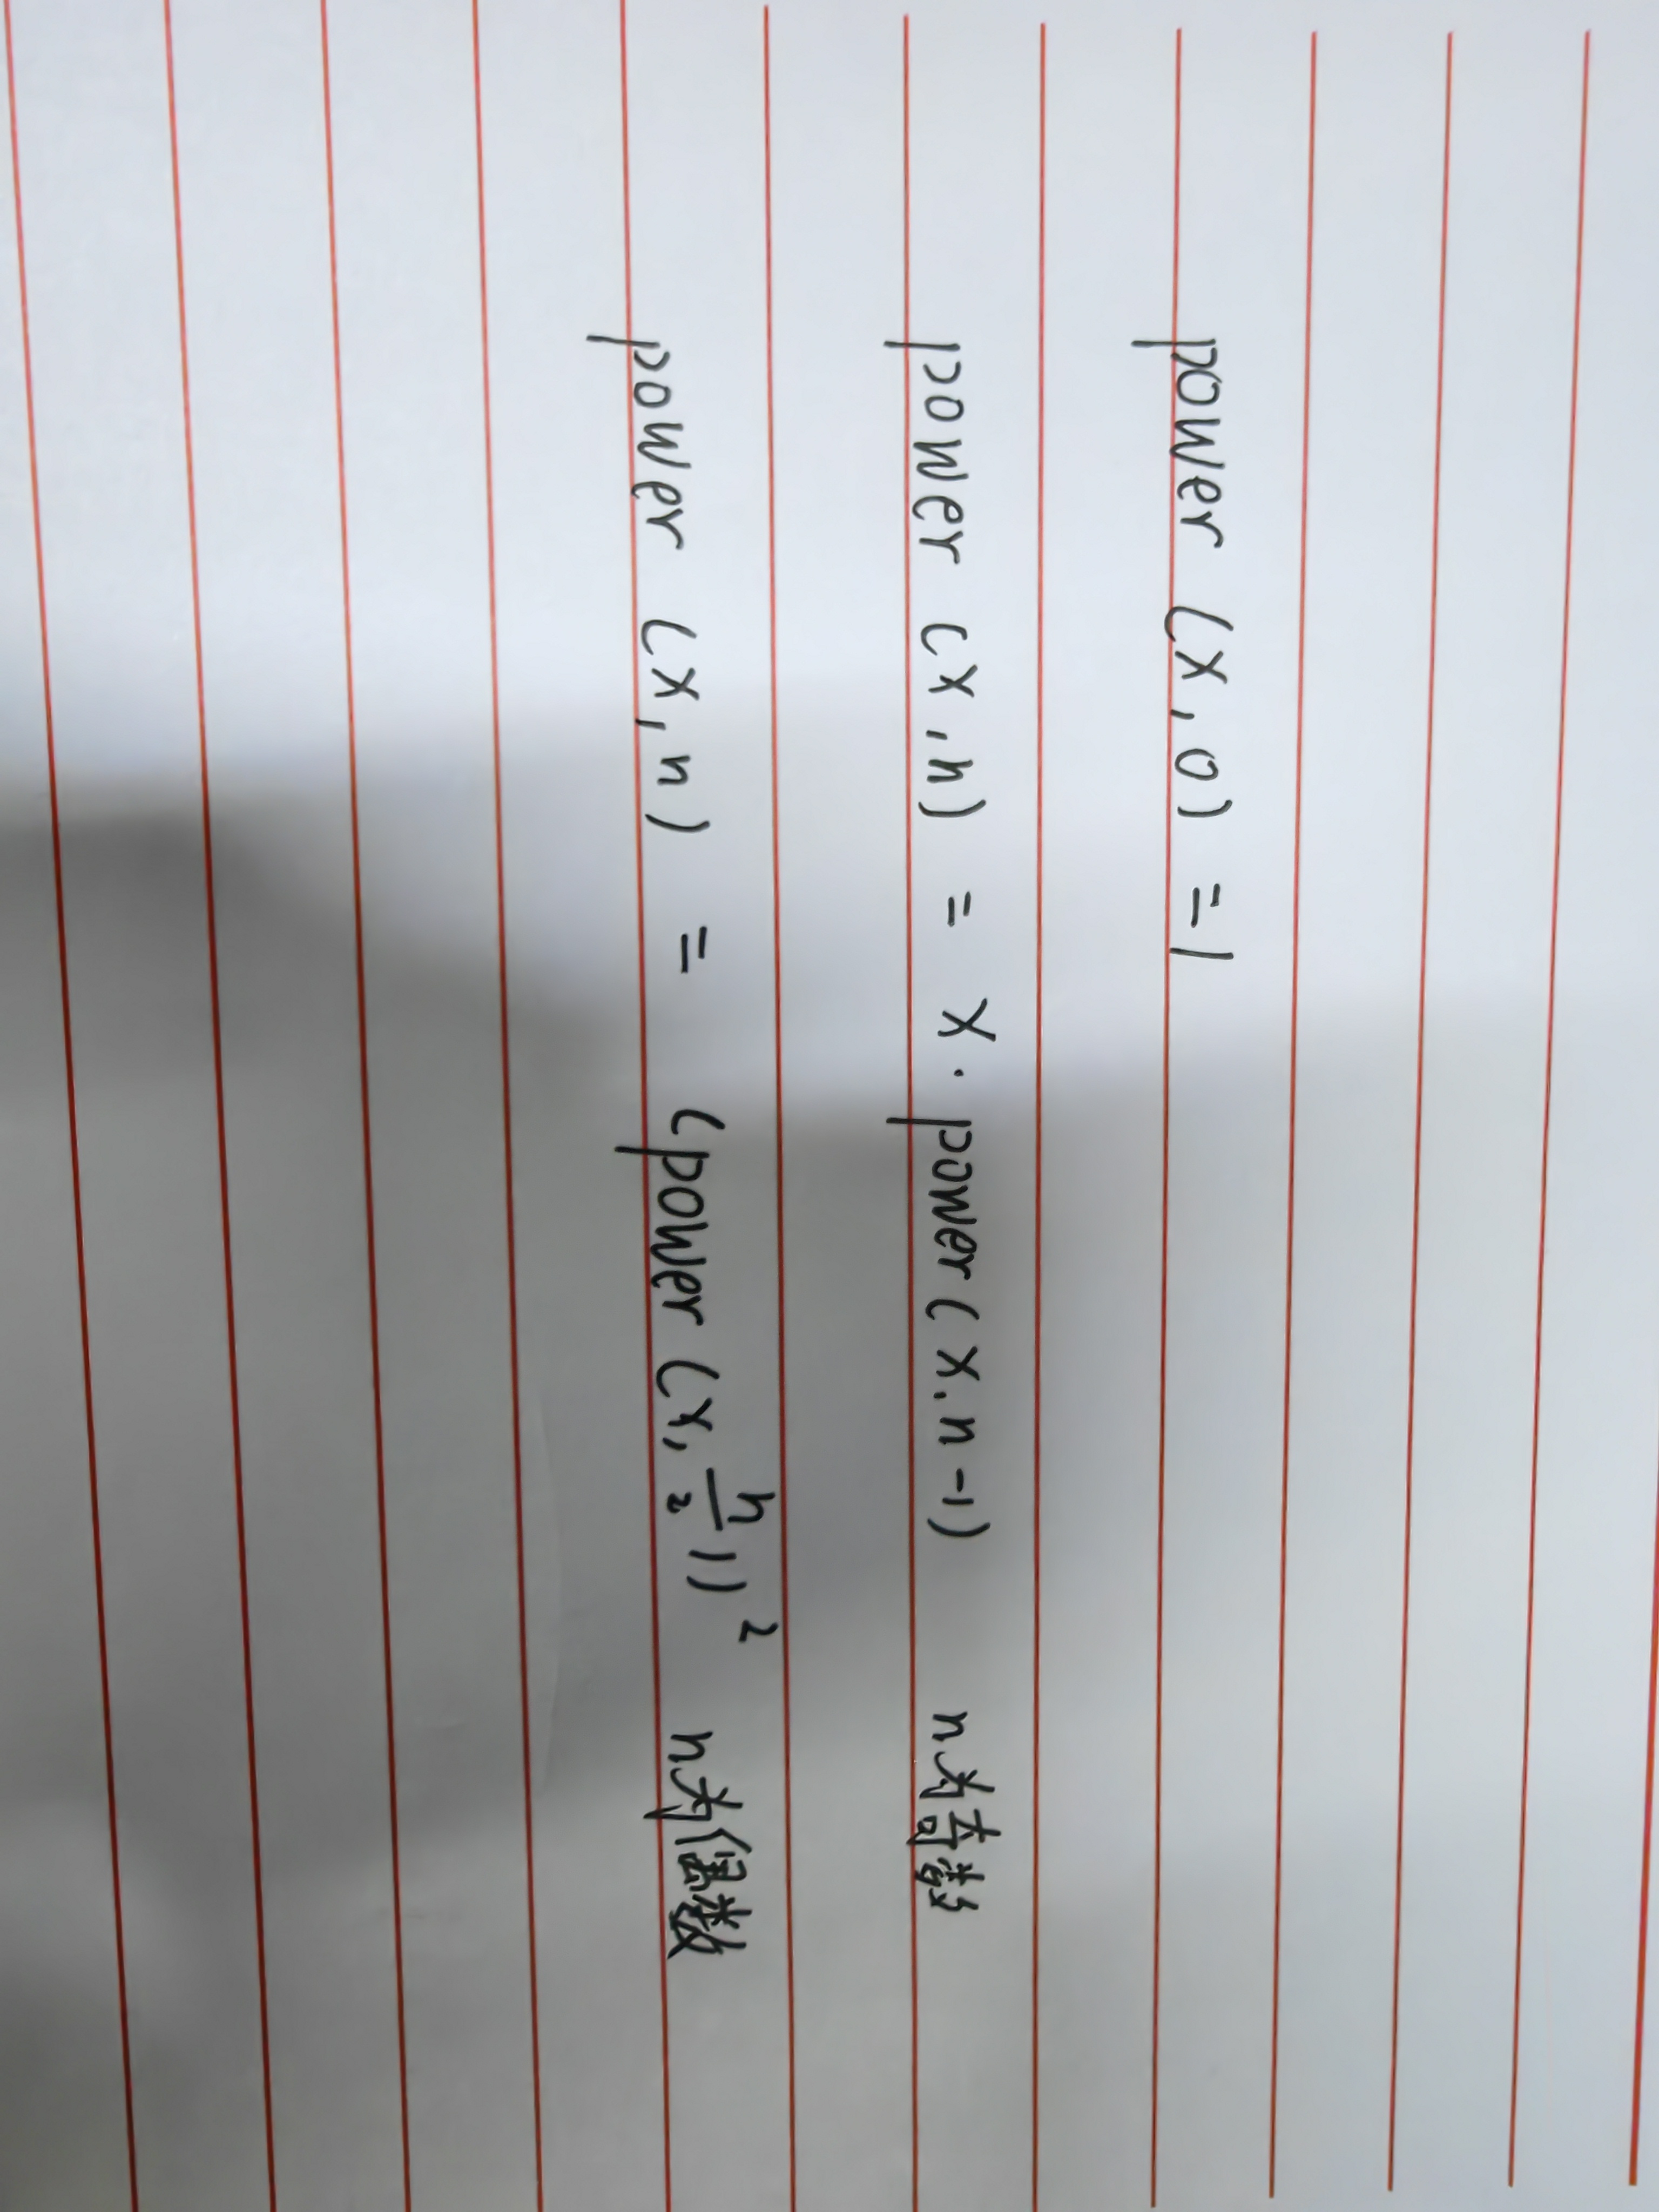 power (x, 0) = 1
power (x, n) = x · power (x, n-1) n为奇数
power (x, n) = (power (x, n/2))² n为偶数